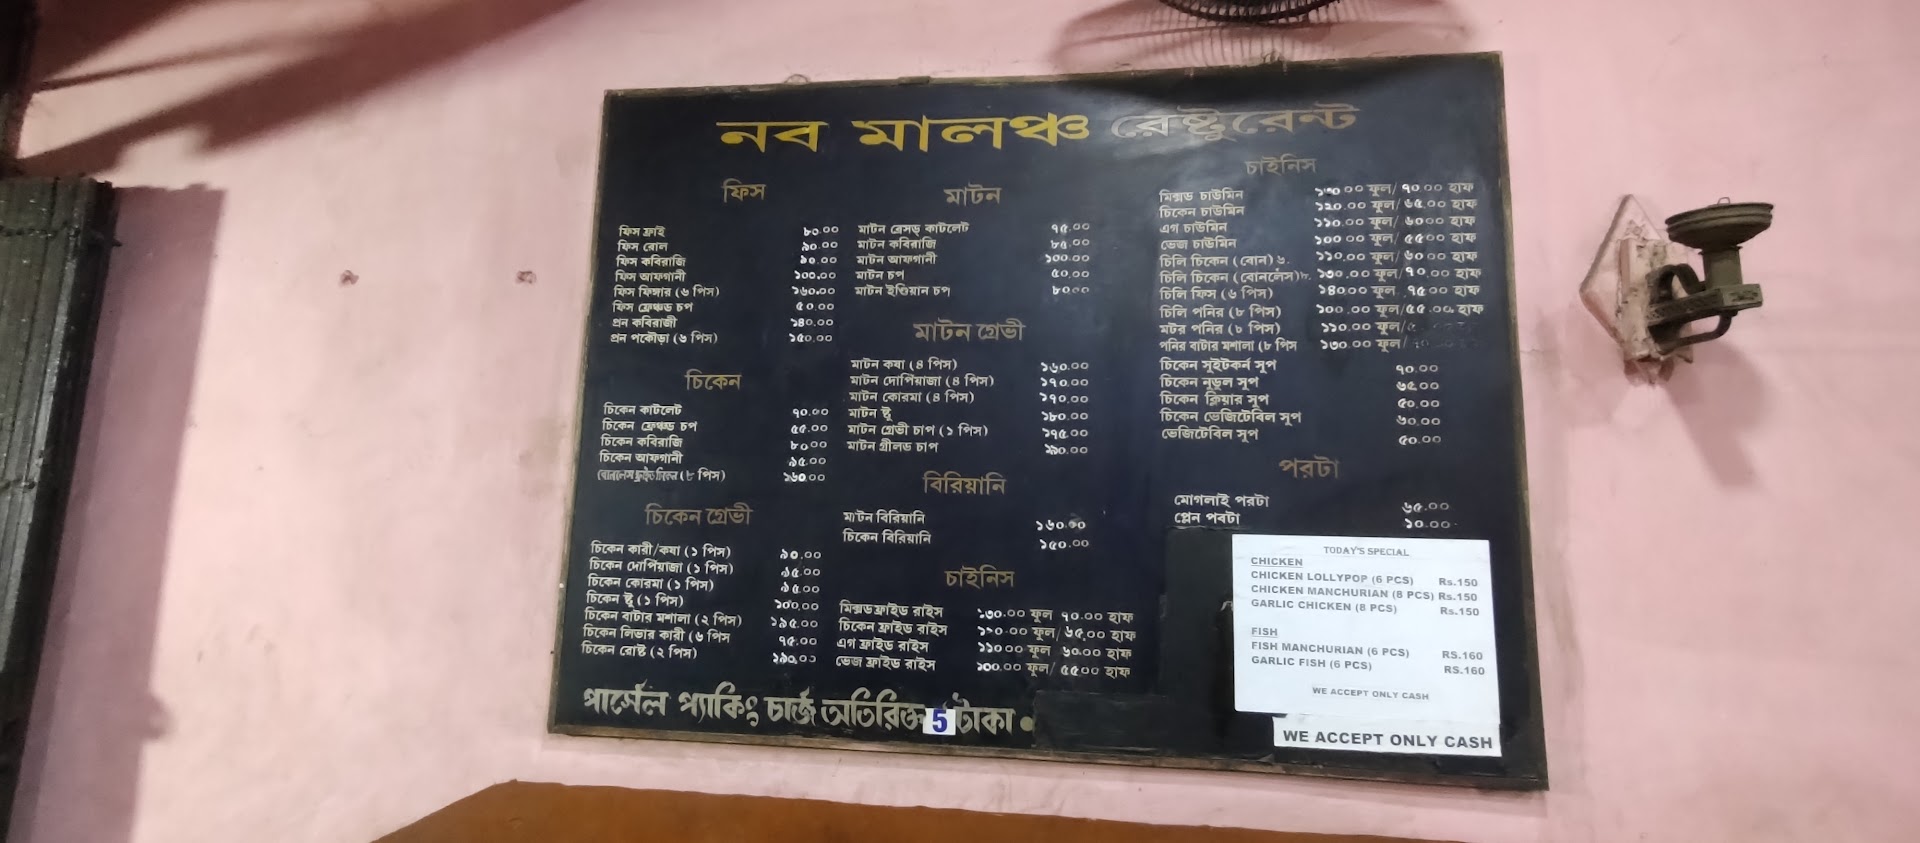 নব মালঞ্চ রেষ্টুরেন্ট
ফিস
ফিস ফ্রাই ৮০.০০
ফিস রোল ৯০.০০
ফিস কবিরাজি ৯০.০০
ফিস আফগানী ১০০.০০
ফিস ফিঙ্গার (৬ পিস) ১৬০.০০
ফিস ফ্রেঞ্চড চপ ৫০.০০
প্রন কবিরাজী ১৪০.০০
প্রন পকৌড়া (৬ পিস) ১৫০.০০
চিকেন
চিকেন কাটলেট ৭০.০০
চিকেন ফ্রেঞ্চড চপ ৫৫.০০
চিকেন কবিরাজি ৮০.০০
চিকেন আফগানী ৯৫.০০
বোনলেস ফ্রাইড চিকেন (৮ পিস) ১৬০.০০
চিকেন গ্রেভী
চিকেন কারী/কষা (১ পিস) ৯০.০০
চিকেন দোপিয়াজা (১ পিস) ৯৫.০০
চিকেন কোরমা (১ পিস) ৯৫.০০
চিকেন ষ্টু (১ পিস) ১০০.০০
চিকেন বাটার মশালা (২ পিস) ১৯৫.০০
চিকেন লিভার কারী (৬ পিস ৭৫.০০
চিকেন রোষ্ট (২ পিস) ১৯০.০০
মাটন
মাটন ব্রেসড্ কাটলেট ৭৫.০০
মাটন কবিরাজি ৮৫.০০
মাটন আফগানী ১০০.০০
মাটন চপ ৫০.০০
মাটন ইণ্ডিয়ান চপ ৮০.০০
মাটন গ্রেভী
মাটন কষা (৪ পিস) ১৬০.০০
মাটন দোপিয়াজা (৪ পিস) ১৭০.০০
মাটন কোরমা (৪ পিস) ১৭০.০০
মাটন ষ্টু ১৮০.০০
মাটন গ্রেভী চাপ (১ পিস) ১৭৫.০০
মাটন গ্রীলড চাপ ১৯০.০০
বিরিয়ানি
মাটন বিরিয়ানি ১৬০.০০
চিকেন বিরিয়ানি ১৫০.০০
চাইনিস
মিক্সড ফ্রাইড রাইস ১৩০.০০ ফুল ৭০.০০ হাফ
চিকেন ফ্রাইড রাইস ফুল/ ৬৫.০০ হাফ
এগ ফ্রাইড রাইস ১১০.০০ ফুল ৬০.০০ হাফ
ভেজ ফ্রাইড রাইস ১০০.০০ ফুল/ ৫৫.০০ হাফ
চাইনিস
মিক্সড চাউমিন ১৩০.০০ ফুল/ ৭০.০০ হাফ
চিকেন চাউমিন ১২০.০০ ফুল/ ৬৫.০০ হাফ
এগ চাউমিন ১১০.০০ ফুল/ ৬০.০০ হাফ
ভেজ চাউমিন ১০০.০০ ফুল/ ৫৫.০০ হাফ
চিলি চিকেন (বোন) ৬. ১১০.০০ ফুল/ ৬০.০০ হাফ
চিলি চিকেন (বোনলেস)৮. ১৩০.০০ ফুল/ ৭০.০০ হাফ
চিলি ফিস (৬ পিস) ১৪০.০০ ফুল ৭৫.০০ হাফ
চিলি পনির (৮ পিস) ১০০.০০ ফুল/ ৫৫.০০ হাফ
মটর পনির (৮ পিস) ১১০.০০ ফুল/
পনির বাটার মশালা (৮ পিস ১৩০.০০ ফুল/
চিকেন সুইটকর্ন সুপ ৭০.০০
চিকেন নুডুল সুপ ৬৫.০০
চিকেন ক্লিয়ার সুপ ৫০.০০
চিকেন ভেজিটেবিল সুপ ৬০.০০
ভেজিটেবিল সুপ ৫০.০০
পরটা
মোগলাই পরটা ৬৫.০০
প্লেন পরটা ১০.০০
TODAY'S SPECIAL
CHICKEN
CHICKEN LOLLYPOP (6 PCS) Rs.150
CHICKEN MANCHURIAN (8 PCS) Rs.150
GARLIC CHICKEN (8 PCS) Rs.150
FISH
FISH MANCHURIAN (6 PCS) RS.160
GARLIC FISH (6 PCS) RS.160
WE ACCEPT ONLY CASH
WE ACCEPT ONLY CASH
পার্সেল প্যাকিং চার্জ অতিরিক্ত 5 টাকা